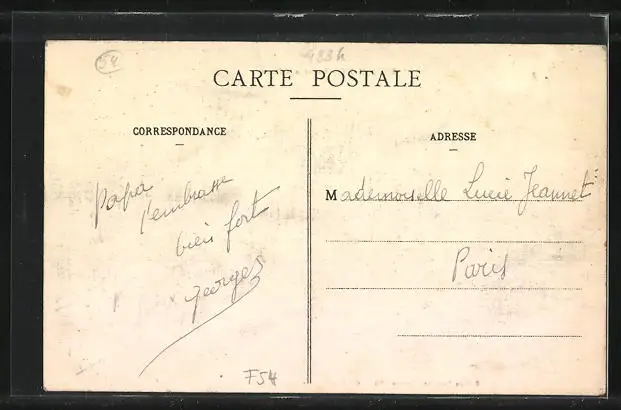 54
CARTE POSTALE
CORRESPONDANCE
Papa
t'embrasse
bien fort
Georges
F54
ADRESSE
Mademoiselle Lucie Jeannet
Paris